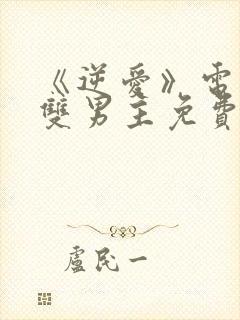 《逆愛》電
雙男主免費
盧民一